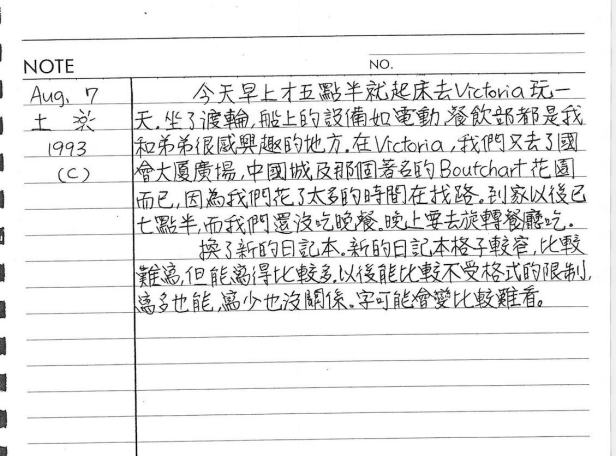 NOTE
NO.
Aug. 7
土
1993
(C)
今天早上才五點半就起床去Victoria玩一
天.坐了渡輪,船上的設備如電動.餐飲部都是我
和弟弟很感興趣的地方.在Victoria,我們又去了國
會大厦廣場,中國城及那個著名的Boutchart花園
而已,因為我們花了太多的時間在找路.到家以後已
七點半,而我們還沒吃晚餐.晚上要去旋轉餐廳吃.
換了新的日記本.新的日記本格子較窄,比較
難寫,但能寫得比較多.以後能比較不受格式的限制,
寫多也能,寫少也沒關係.字可能會變比較難看。